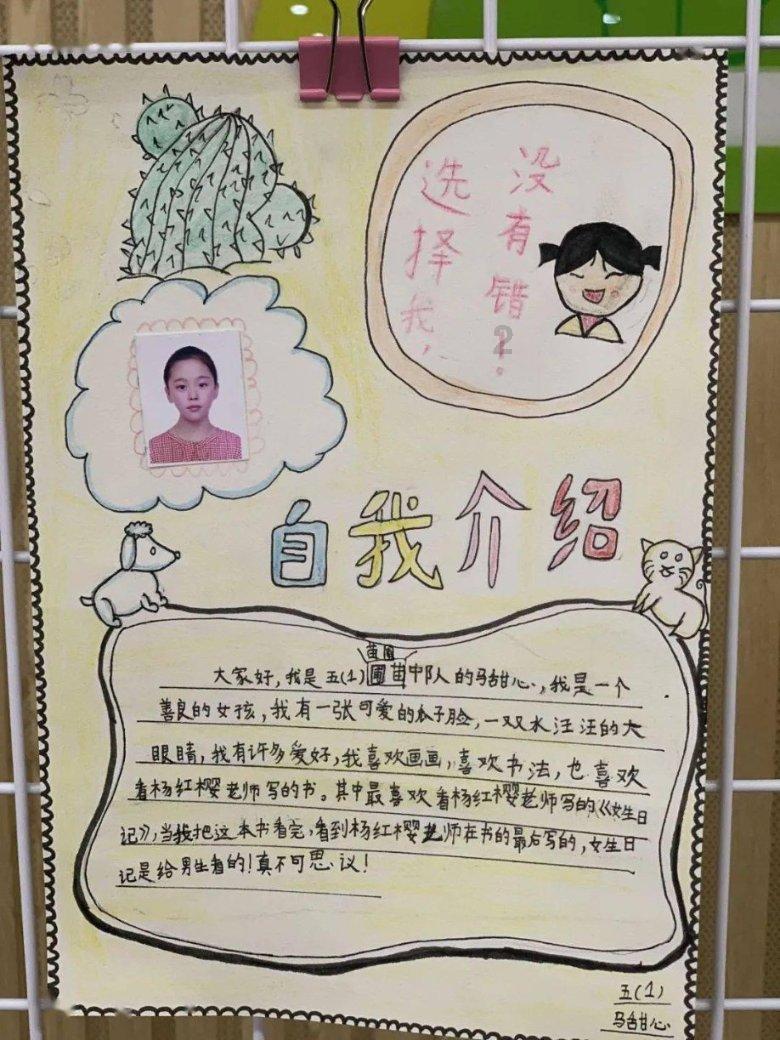 选择我，
没有错！
2
自我介绍
苗圃
大家好，我是五(1)圃苗中队人的马甜心，我是一个
善良的女孩，我有一张可爱的瓜子脸，一双水汪汪的大
眼睛，我有许多爱好，我喜欢画画，喜欢书法，也喜欢
看杨红樱老师写的书。其中最喜欢看杨红樱老师写的《女生日
记》，当我把这本书看完，看到杨红樱老师在书的最后写的，女生日
记是给男生看的！真不可思议！
五(1)
马甜心